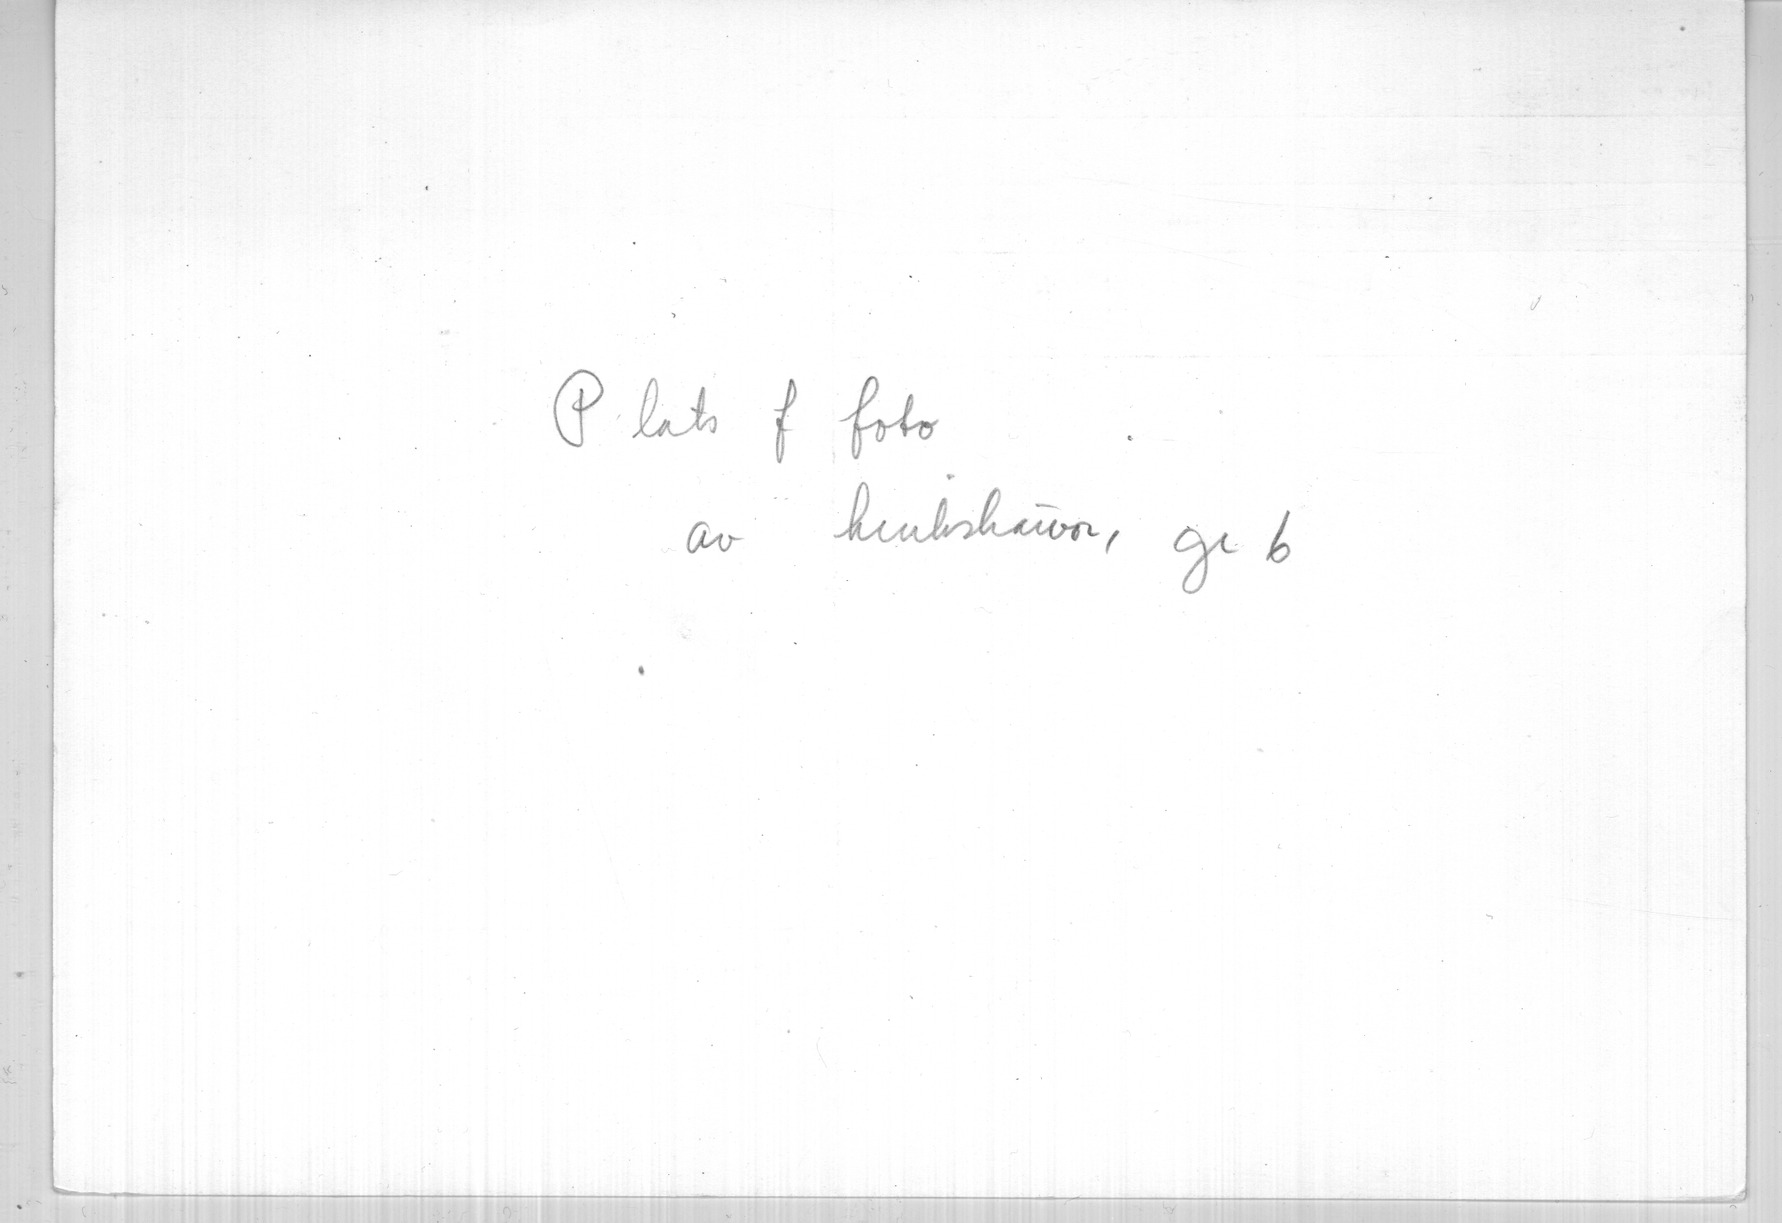 Plats f foto
av krukskärvor, gr 6